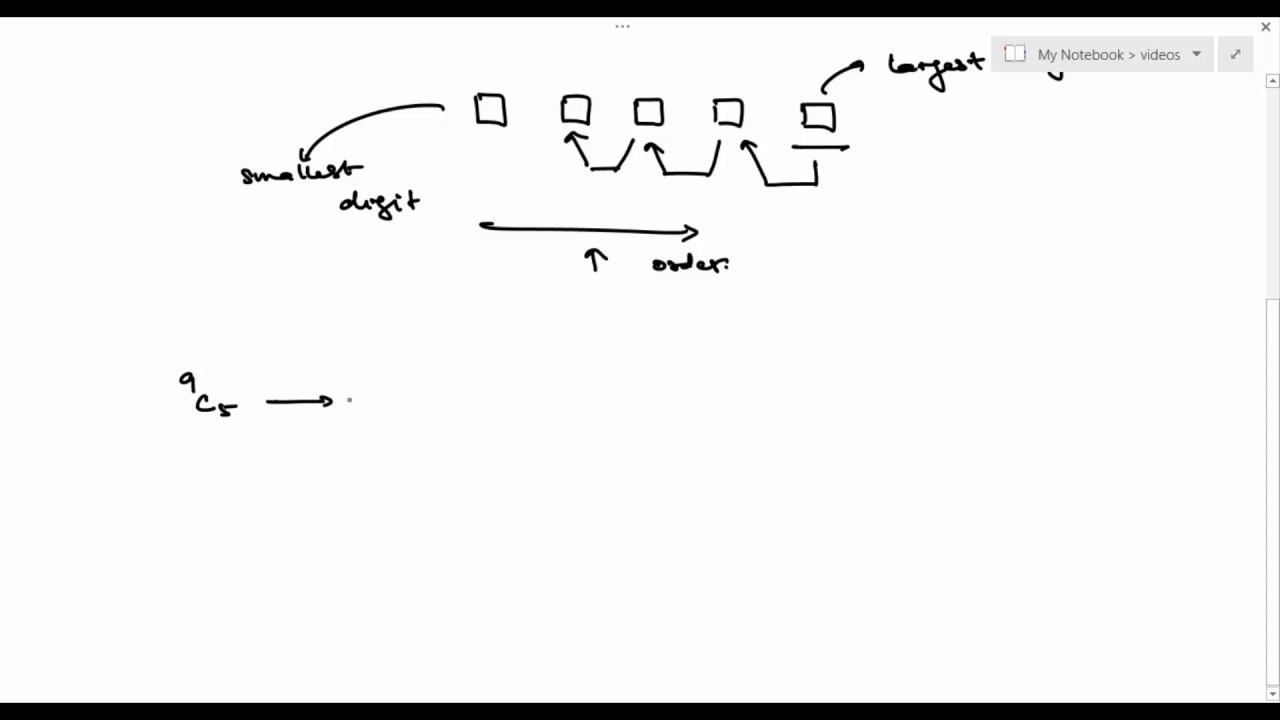 My Notebook > videos
largest
smallest
digit
↑ order.
⁹C₅ →